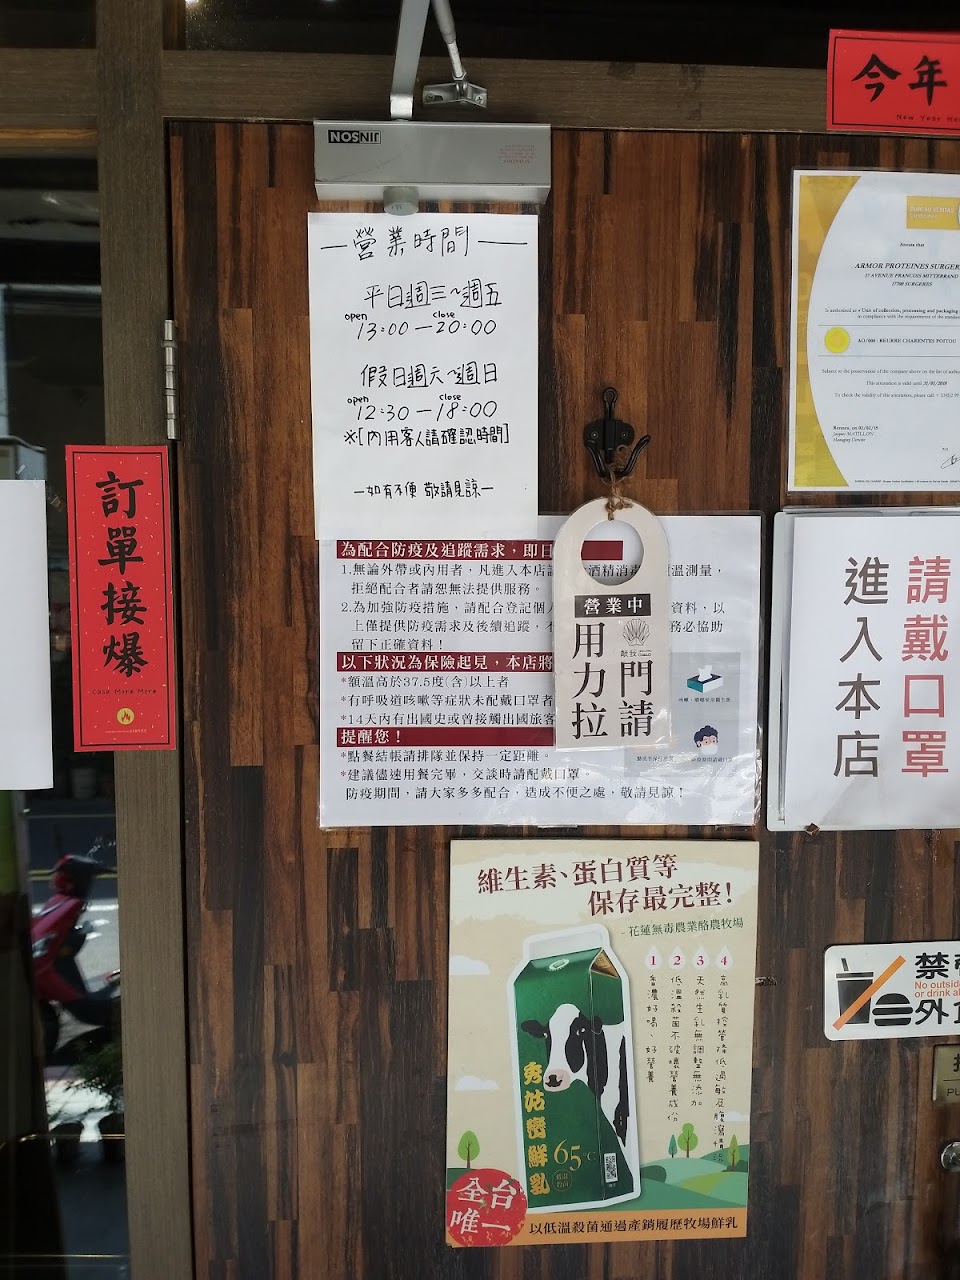 JINSON
今年
New Year
營業時間
平日週三~週五
open close
13:00—20:00
假日週六~週日
open close
12:30—18:00
※[內用客人請確認時間]
—如有不便 敬請見諒—
訂單接爆
BUREAU VERITAS
Attests that
ARMOR PROTEINES SURGER
17700 SURGERES
AO/000 - BEURRE CHARENTES POITOU
為配合防疫及追蹤需求，即日
1.無論外帶或內用者，凡進入本店
酒精消毒
溫測量，
拒絕配合者請恕無法提供服務。
2.為加強防疫措施，請配合登記個人
資料，以
上僅提供防疫需求及後續追蹤，
務必協助
留下正確資料！
以下狀況為保險起見，本店將
*額溫高於37.5度(含)以上者
*有呼吸道咳嗽等症狀未配戴口罩者
*14天內有出國史或曾接觸出國旅客
提醒您！
*點餐結帳請排隊並保持一定距離。
*建議儘速用餐完畢，交談時請配戴口罩。
防疫期間，請大家多多配合，造成不便之處，敬請見諒！
營業中
門請
用力拉
請戴口罩
進入本店
維生素、蛋白質等
保存最完整！
-花蓮無毒農業酪農牧場
1 2 3 4
香濃好喝、好營養
低溫殺菌不破壞營養成份
天然生乳無調整無添加
秀姑巒鮮乳
65°C
全台
唯一
以低溫殺菌通過產銷履歷牧場鮮乳
禁
No outside
or drink
外
PU